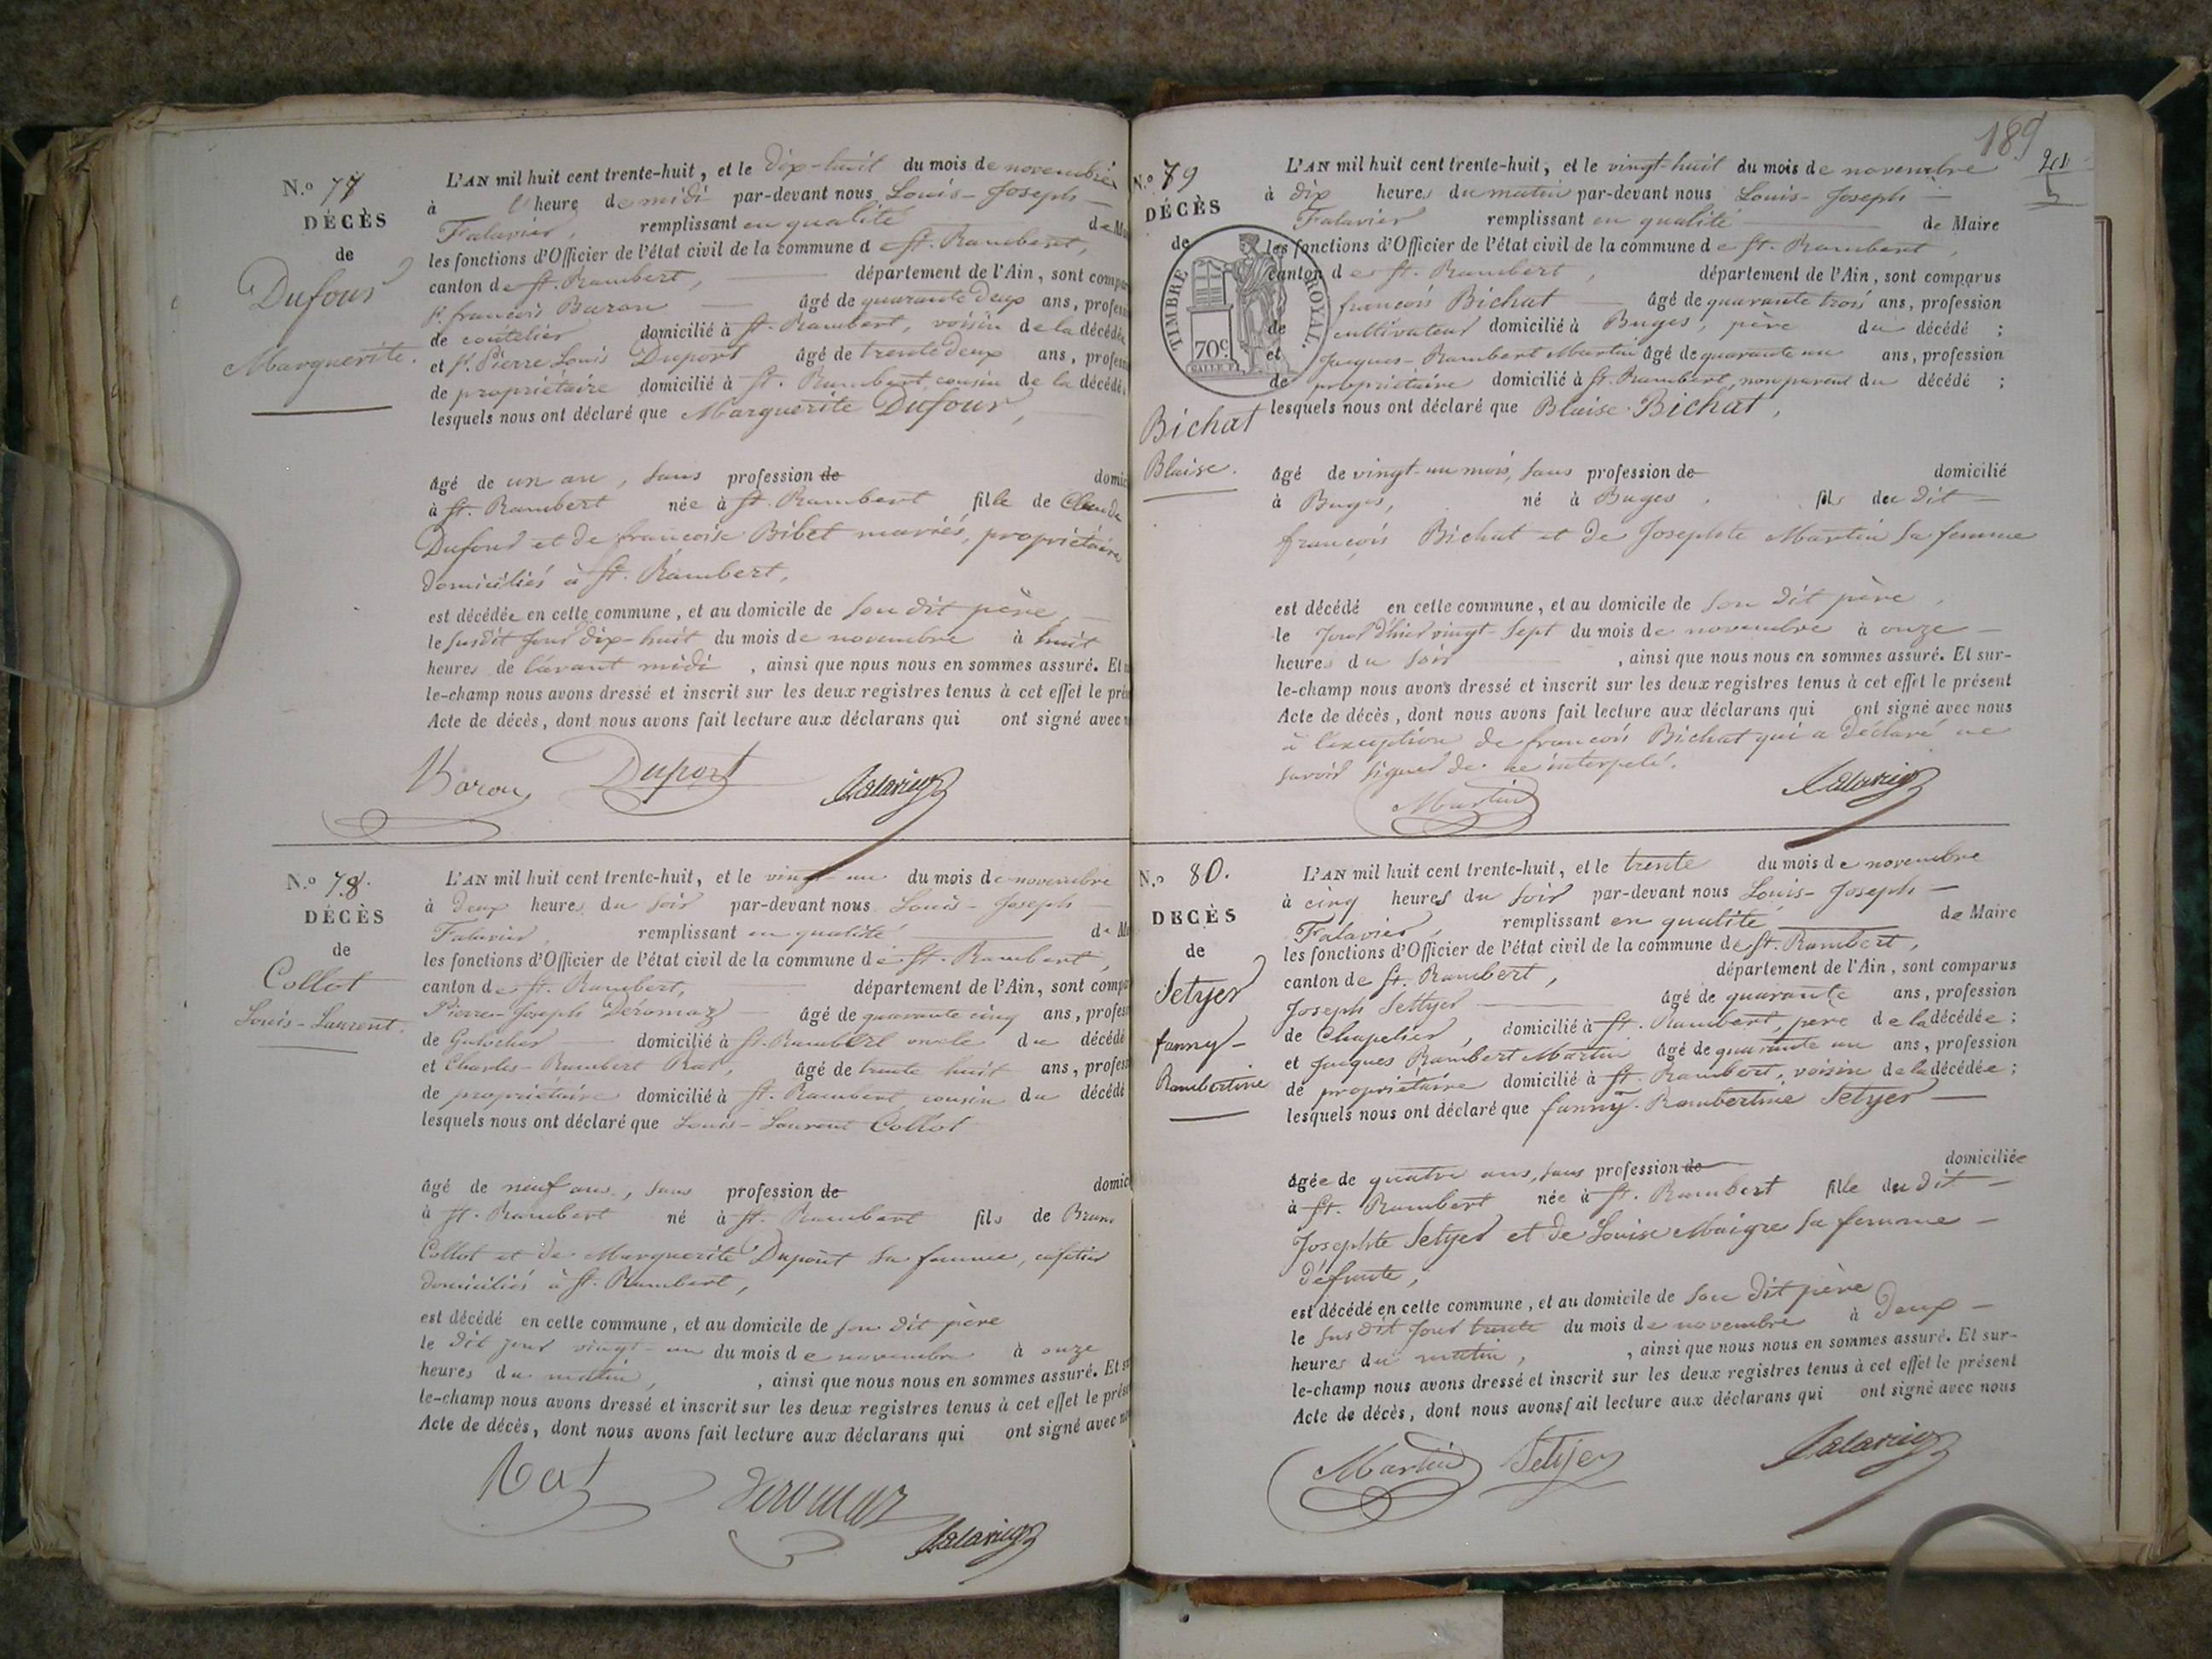 N.º 77
DÉCÈS
de
Dufour
Marguerite.
L'AN mil huit cent trente-huit, et le dix-huit du mois de novembre
à l'heure de midi par-devant nous Louis-Joseph
Falavier, remplissant en qualité de M
les fonctions d'Officier de l'état civil de la commune de St. Rambert,
canton de St. Rambert, département de l'Ain, sont compa
Sr. françois Baron âgé de quarante deux ans, profess
de coutelier domicilié à St. Rambert, voisin de la décédée
et Sr. Pierre Louis Duport âgé de trente deux ans, profess
de propriétaire domicilié à St. Rambert, cousin de la décédée
lesquels nous ont déclaré que Marguerite Dufour,
âgé de un an, sans profession de domic
à St. Rambert née à St. Rambert fille de Claude
Dufour et de françoise Bibet mariés, propriétaire
domiciliés à St. Rambert,
est décédée en cette commune, et au domicile de son dit père
le susdit jour dix-huit du mois de novembre à huit
heures de l'avant midi, ainsi que nous nous en sommes assuré. Et
le-champ nous avons dressé et inscrit sur les deux registres tenus à cet effet le pré
Acte de décès, dont nous avons fait lecture aux déclarans qui ont signé avec
Baron Duport Falavier
N.º 78.
DÉCÈS
de
Collot
Louis-Laurent.
L'AN mil huit cent trente-huit, et le vingt-un du mois de novembre
à deux heures du soir par-devant nous Louis-Joseph
Falavier, remplissant en qualité de M
les fonctions d'Officier de l'état civil de la commune de St. Rambert,
canton de St. Rambert, département de l'Ain, sont compa
Pierre-Joseph Déromaz âgé de quarante cinq ans, profess
de domicilié à St. Rambert oncle du décédé
et Charles-Rambert Rat, âgé de trente huit ans, profess
de propriétaire domicilié à St. Rambert cousin du décédé
lesquels nous ont déclaré que Louis-Laurent Collot
âgé de neuf ans, sans profession de domic
à St. Rambert né à St. Rambert fils de Brun
Collot et de Marguerite Dupont sa femme, cafetier
domiciliés à St. Rambert,
est décédé en cette commune, et au domicile de son dit père
le dit jour vingt-un du mois de novembre à onze
heures du matin, , ainsi que nous nous en sommes assuré. Et s
le-champ nous avons dressé et inscrit sur les deux registres tenus à cet effet le prés
Acte de décès, dont nous avons fait lecture aux déclarans qui ont signé avec
Rat Deromaz Falavier
189
N.º 79
DÉCÈS
de
TIMBRE ROYAL.
70c
Bichat
Blaise.
L'AN mil huit cent trente-huit, et le vingt-huit du mois de novembre
à dix heures du matin par-devant nous Louis-Joseph
Falavier remplissant en qualité de Maire
les fonctions d'Officier de l'état civil de la commune de St. Rambert,
canton de St. Rambert, département de l'Ain, sont comparus
françois Bichat âgé de quarante trois ans, profession
de cultivateur domicilié à Buges, père du décédé ;
et Jacques-Rambert Martin âgé de quarante un ans, profession
de propriétaire domicilié à St. Rambert, non parent du décédé ;
lesquels nous ont déclaré que Blaise Bichat,
âgé de vingt-un mois, sans profession de domicilié
à Buges, né à Buges. fils du dit
françois Bichat et de Josephte Martin sa femme
est décédé en cette commune, et au domicile de son dit père,
le jour d'hier vingt-sept du mois de novembre à onze
heures du soir , ainsi que nous nous en sommes assuré. Et sur-
le-champ nous avons dressé et inscrit sur les deux registres tenus à cet effet le présent
Acte de décès, dont nous avons fait lecture aux déclarans qui ont signé avec nous
à l'exception de françois Bichat qui a déclaré ne
savoir signer de ce interpelé.
Martin Falavier
N.º 80.
DÉCÈS
de
Setyer
fanny-
Rambertine
L'AN mil huit cent trente-huit, et le trente du mois de novembre
à cinq heures du soir par-devant nous Louis-Joseph
Falavier, remplissant en qualité de Maire
les fonctions d'Officier de l'état civil de la commune de St. Rambert,
canton de St. Rambert, département de l'Ain, sont comparus
Joseph Settyer âgé de quarante ans, profession
de Chapelier, domicilié à St. Rambert, père de la décédée ;
et Jacques Rambert Martin âgé de quarante un ans, profession
de propriétaire domicilié à St. Rambert, voisin de la décédée ;
lesquels nous ont déclaré que fanny-Rambertine Setyer
âgée de quatre ans, sans profession de domiciliée
à St. Rambert née à St. Rambert fille du dit
Josephte Setyer et de Louise Maigre sa femme
défunte,
est décédé en cette commune, et au domicile de son dit père
le susdit jour trente du mois de novembre à deux
heures du matin, , ainsi que nous nous en sommes assuré. Et sur-
le-champ nous avons dressé et inscrit sur les deux registres tenus à cet effet le présent
Acte de décès, dont nous avons fait lecture aux déclarans qui ont signé avec nous
Martin Setyer Falavier